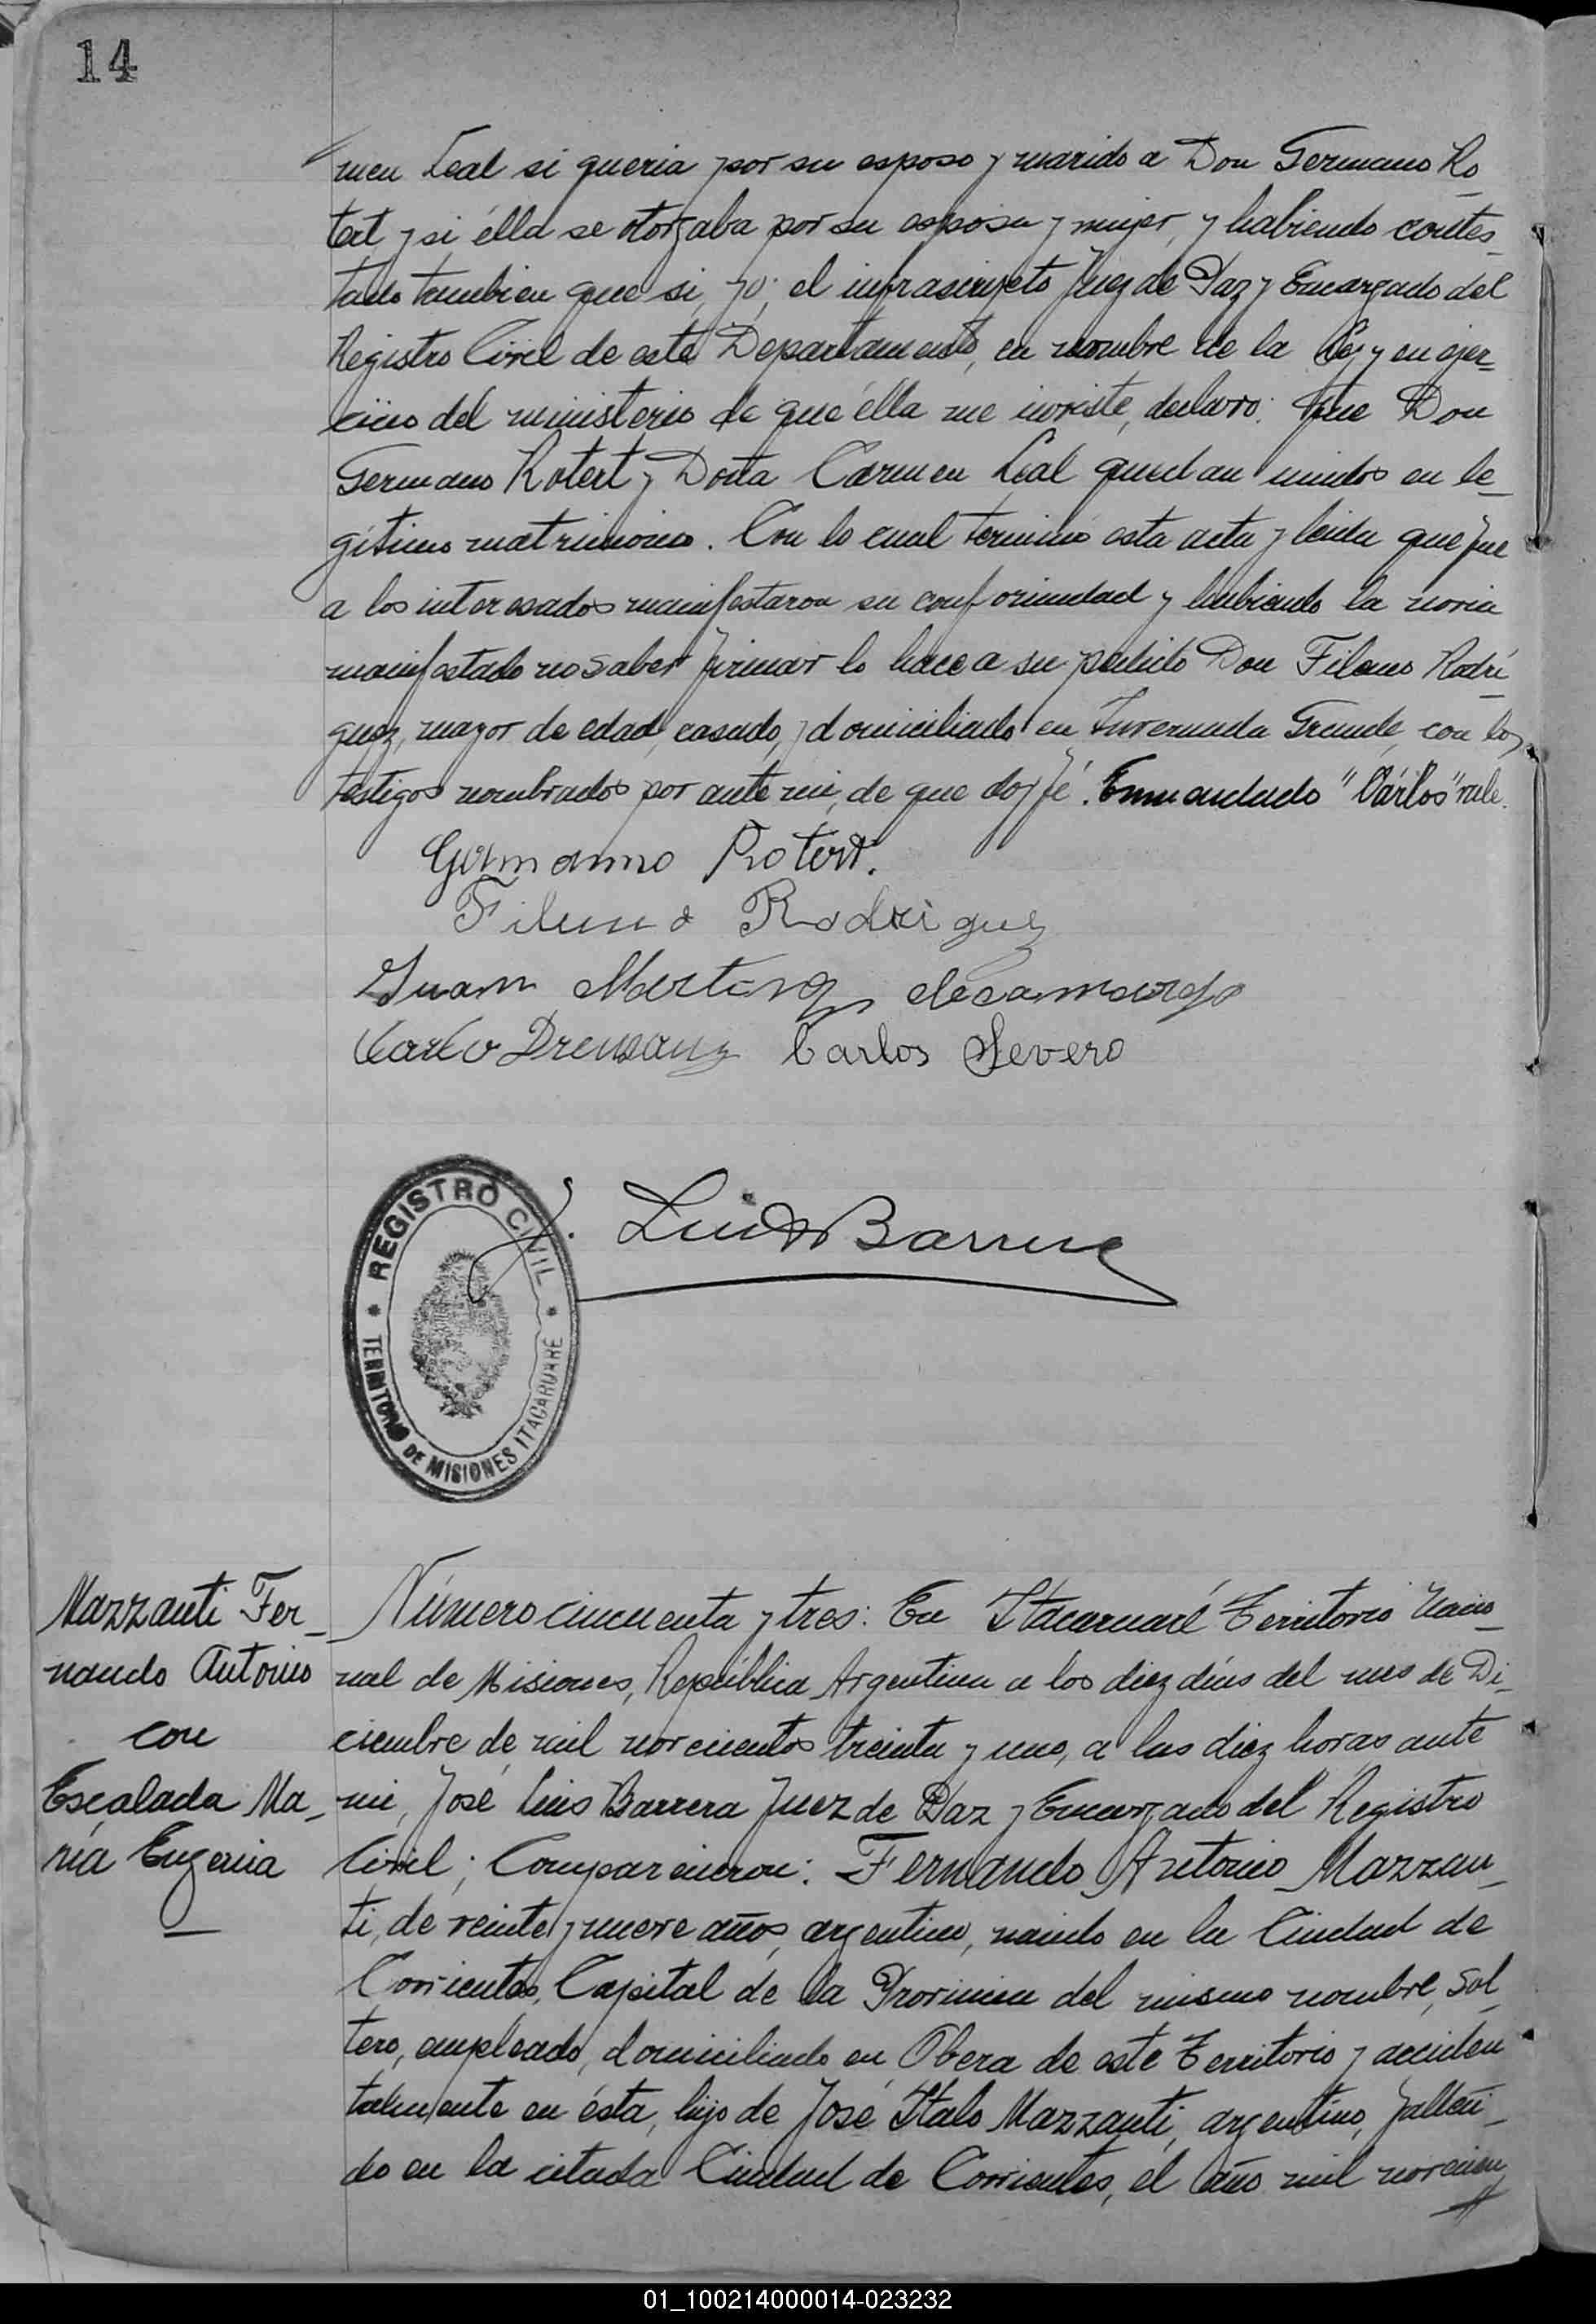 14
men Leal si queria por su esposo y marido a Don Germano Ro_
tert y si élla se otorgaba por su esposa y mujer, y habiendo contes_
tado tambien que si, yo; el infrascripto Juez de Paz y Encargado del
Registro Civil de este Departamento, en nombre de la Ley y en ejer_
cicio del ministerio de que élla me inviste, declaro: Que Don
Germano Rotert y Doña Carmen Leal quedan unidos en le_
gítimo matrimonio. Con lo cual terminó esta acta y leida que fue
a los interesados manifestaron su conformidad y habiendo la novia
manifestado no saber firmar lo hace a su pedido Don Fileno Rodrí_
guez, mayor de edad, casado, y domiciliado en Invernada Grande, con los
testigos nombrados por ante mi, de que doy fé. Enmendado "Cárlos" vale.
Germanno Rotert.
Fileno Rodriguez
Juan Martinz decamargo
Carlos Severo
J. Luis Barrera
REGISTRO CIVIL
TERRITORIO DE MISIONES ITACARUARÉ
Mazzanti Fer_
nando Antonio
con
Escalada Ma_
ría Eugenia
Número cincuenta y tres: En Itacaruaré Territorio Nacio_
nal de Misiones, República Argentina a los diez dias del mes de Di_
ciembre de mil novecientos treinta y uno, a las diez horas ante
mi, José Luis Barrera Juez de Paz y Encargado del Registro
Civil; Comparecieron: Fernando Antonio Mazzan_
ti, de veinte y nueve años, argentino, nacido en la Ciudad de
Corrientes, Capital de la Provincia del mismo nombre, sol_
tero, empleado, domiciliado en Obera de este Territorio y acciden_
talmente en ésta, hijo de José Italo Mazzanti, argentino, falleci_
do en la citada Ciudad de Corrientes, el año mil novecien_
01_100214000014-023232